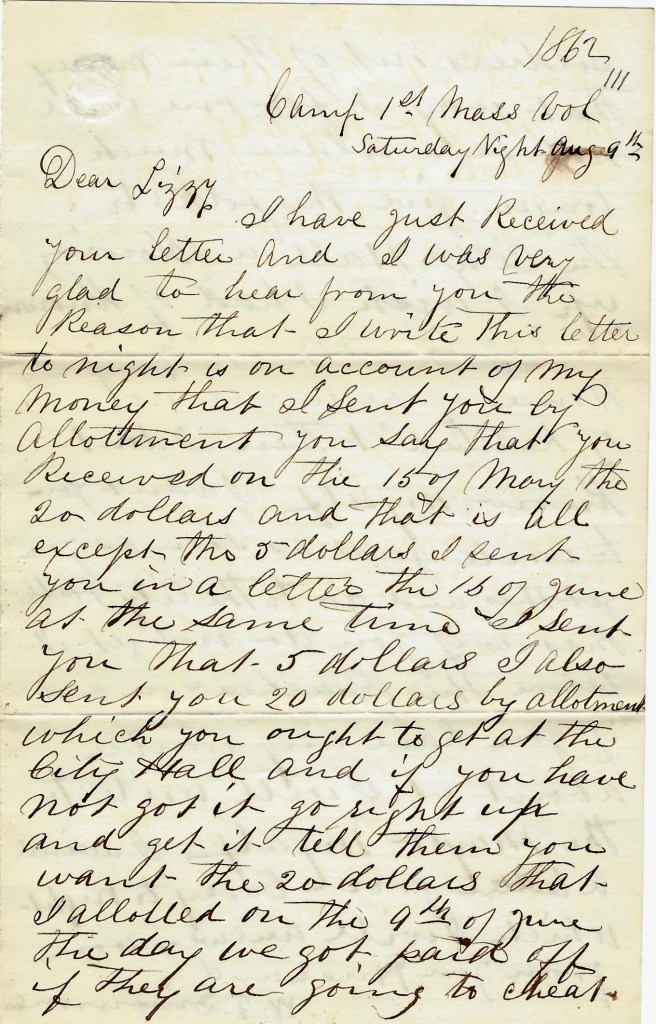 1862
111
Camp 1st Mass Vol
Saturday Night Aug 9th
Dear Lizzy
I have just Received
your letter and I was very
glad to hear from you the
Reason that I write this letter
to night is on account of my
money that I sent you by
Allottment you say that you
Received on the 15 of May the
20 dollars and that is all
except the 5 dollars I sent
you in a letter the 15 of June
at the same time I sent
you that 5 dollars I also
sent you 20 dollars by allotment
which you ought to get at the
City Hall and if you have
not got it go right up
and get it tell them you
want the 20 dollars that
I allotted on the 9th of June
the day we got paid off
if they are going to cheat